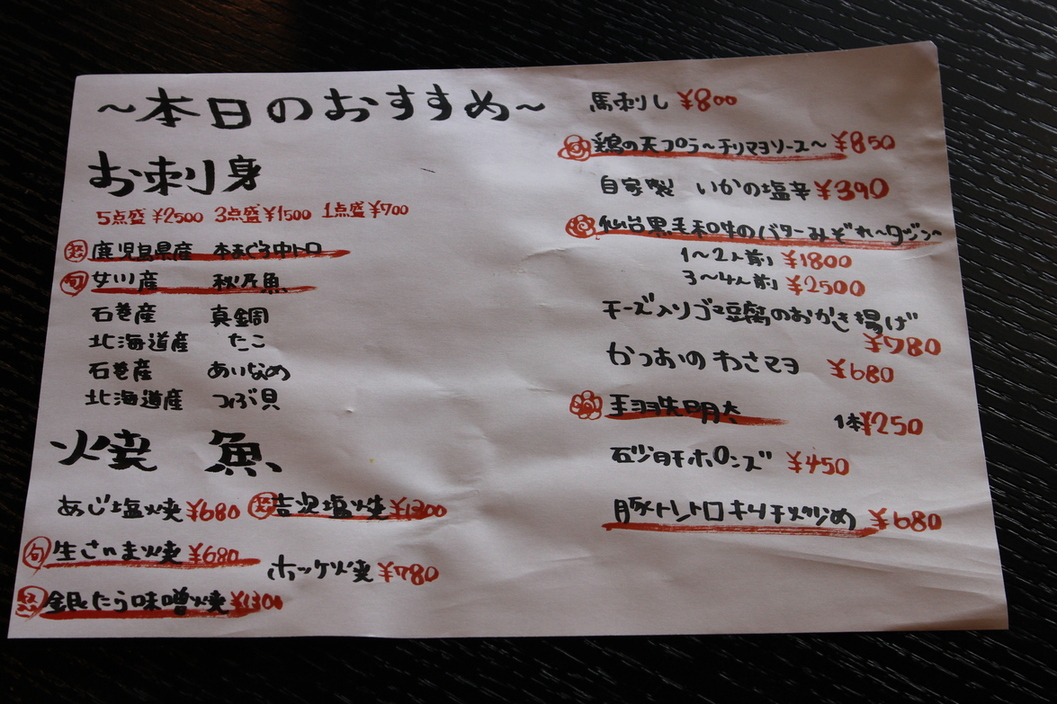 ～本日のおすすめ～
お刺身
5点盛 ¥2500 3点盛 ¥1500 1点盛 ¥700
鹿児島県産 本まぐろ中トロ
旬 女川産 秋乃魚
石巻産 真鯛
北海道産 たこ
石巻産 あいなめ
北海道産 つぶ貝
焼魚
あじ塩焼 ¥680 吉次塩焼 ¥1300
旬 生さんま焼 ¥680
ホッケ焼 ¥780
銀たら味噌焼 ¥1300
馬刺し ¥800
鶏の天プラ～チリマヨソース～ ¥850
自家製 いかの塩辛 ¥390
仙台黒毛和牛のバターみぞれ～タジン～
1～2人前 ¥1800
3～4人前 ¥2500
チーズ入りゴマ豆腐のおかき揚げ
¥780
かつおのわさマヨ ¥680
手羽先明太 1本 ¥250
石づ肝ポンズ ¥450
豚トントロキムチ炒め ¥680